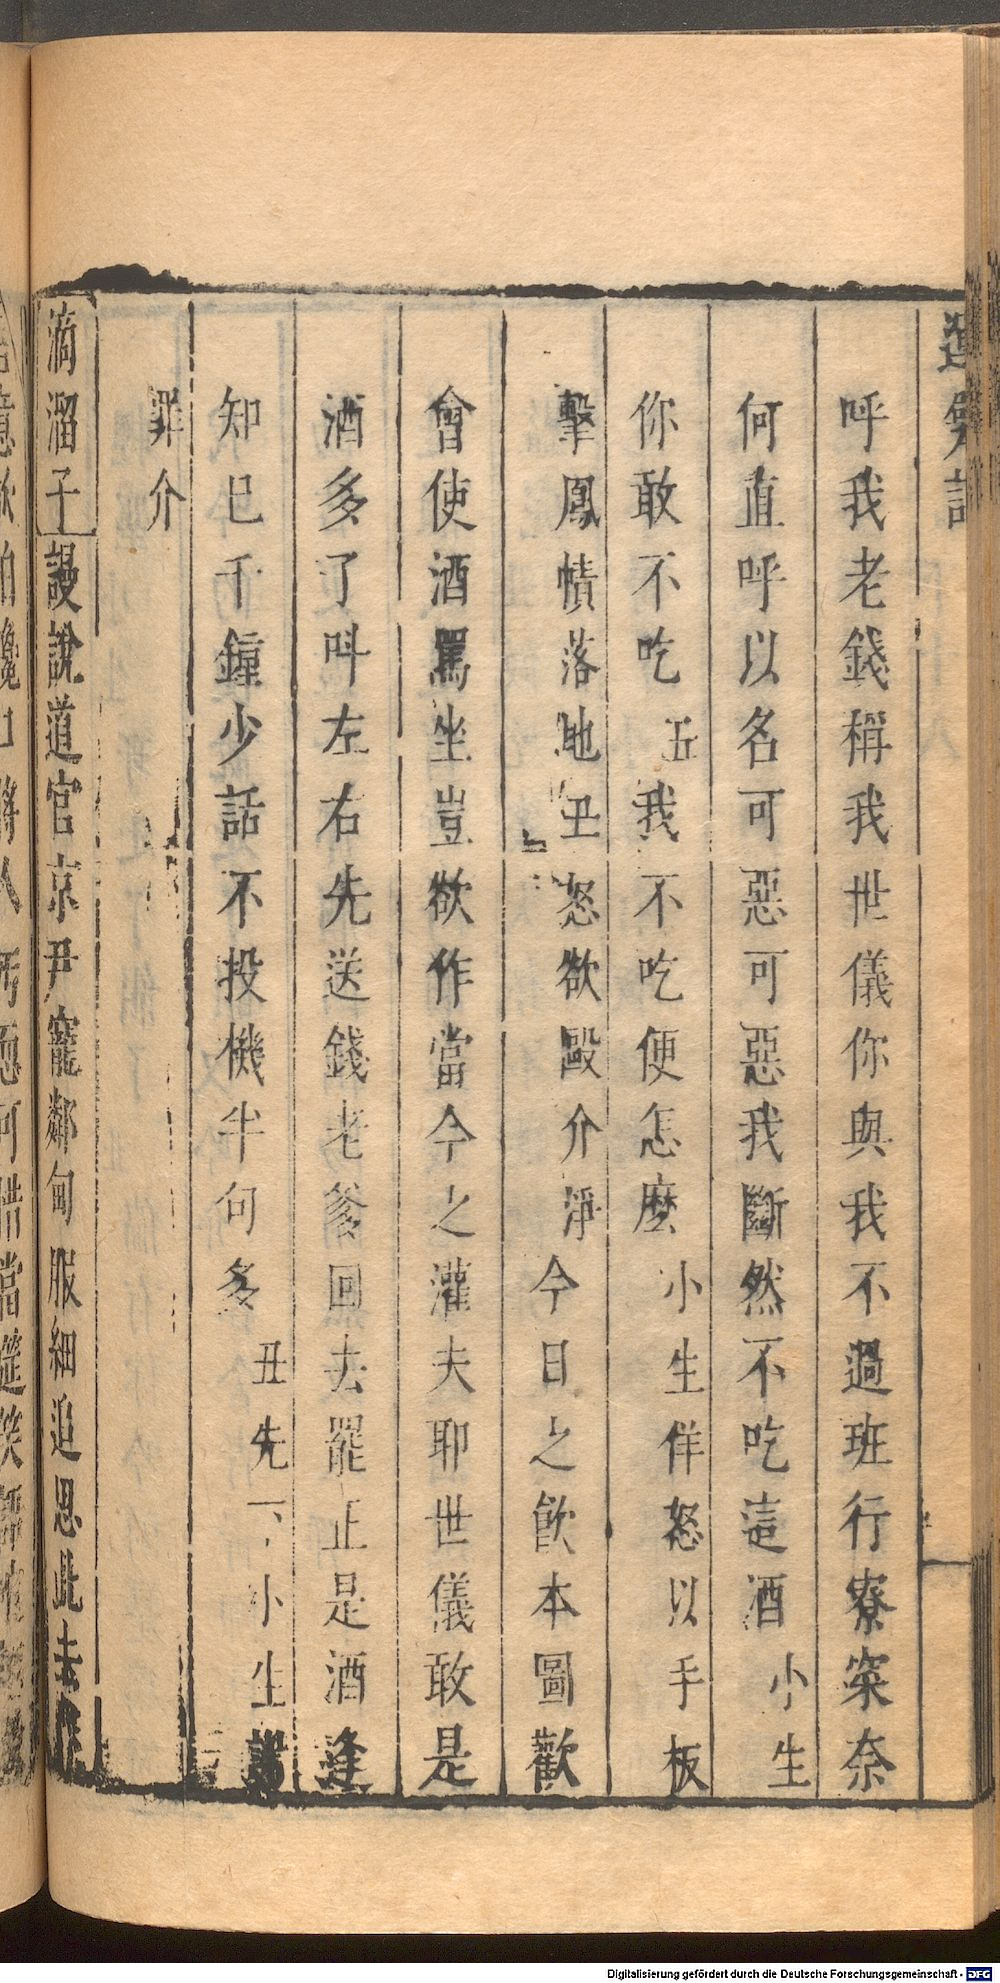 呼我老錢稱我世儀你與我不過班行寮寀奈
何直呼以名可惡可惡我斷然不吃這酒小生
你敢不吃丑我不吃便怎麼小生佯怒以手板
擊鳳幘落地丑怒欲毆介淨今日之飮本圖歡
會使酒罵坐豈欲作當今之灌夫耶世儀敢是
酒多了呌左右先送錢老爹回去罷正是酒逢
知巳千鐘少話不投機半句多丑先下小生謝
罪介
滴溜子謾說道官京尹寵鄰甸服細追思此去
Digitalisierung gefördert durch die Deutsche Forschungsgemeinschaft - DFG